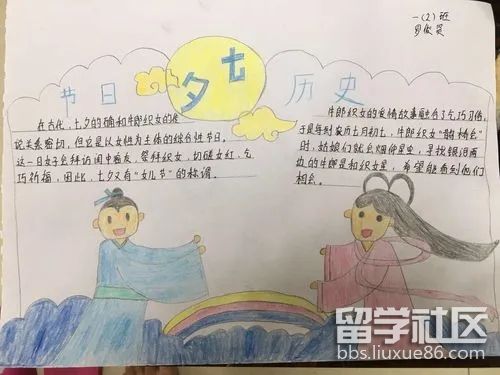 一(2)班
节日
七
夕
历史
在古代,七夕的确和牛郎织女的传
说关系密切,但它是以女性为主体的综合性节日。
这一日女子会拜访闺中密友、祭拜织女、切磋女红、乞
巧祈福,因此,七夕又有“女儿节”的称谓。
牛郎织女的爱情故事融合了乞巧习俗,
于是每到农历七月初七,牛郎织女“鹊桥会”
时,姑娘们就会烟仰星空,寻找银河两
边的牛郎星和织女星,希望能看到他们
相会。
留学社区
bbs.liuxue86.com